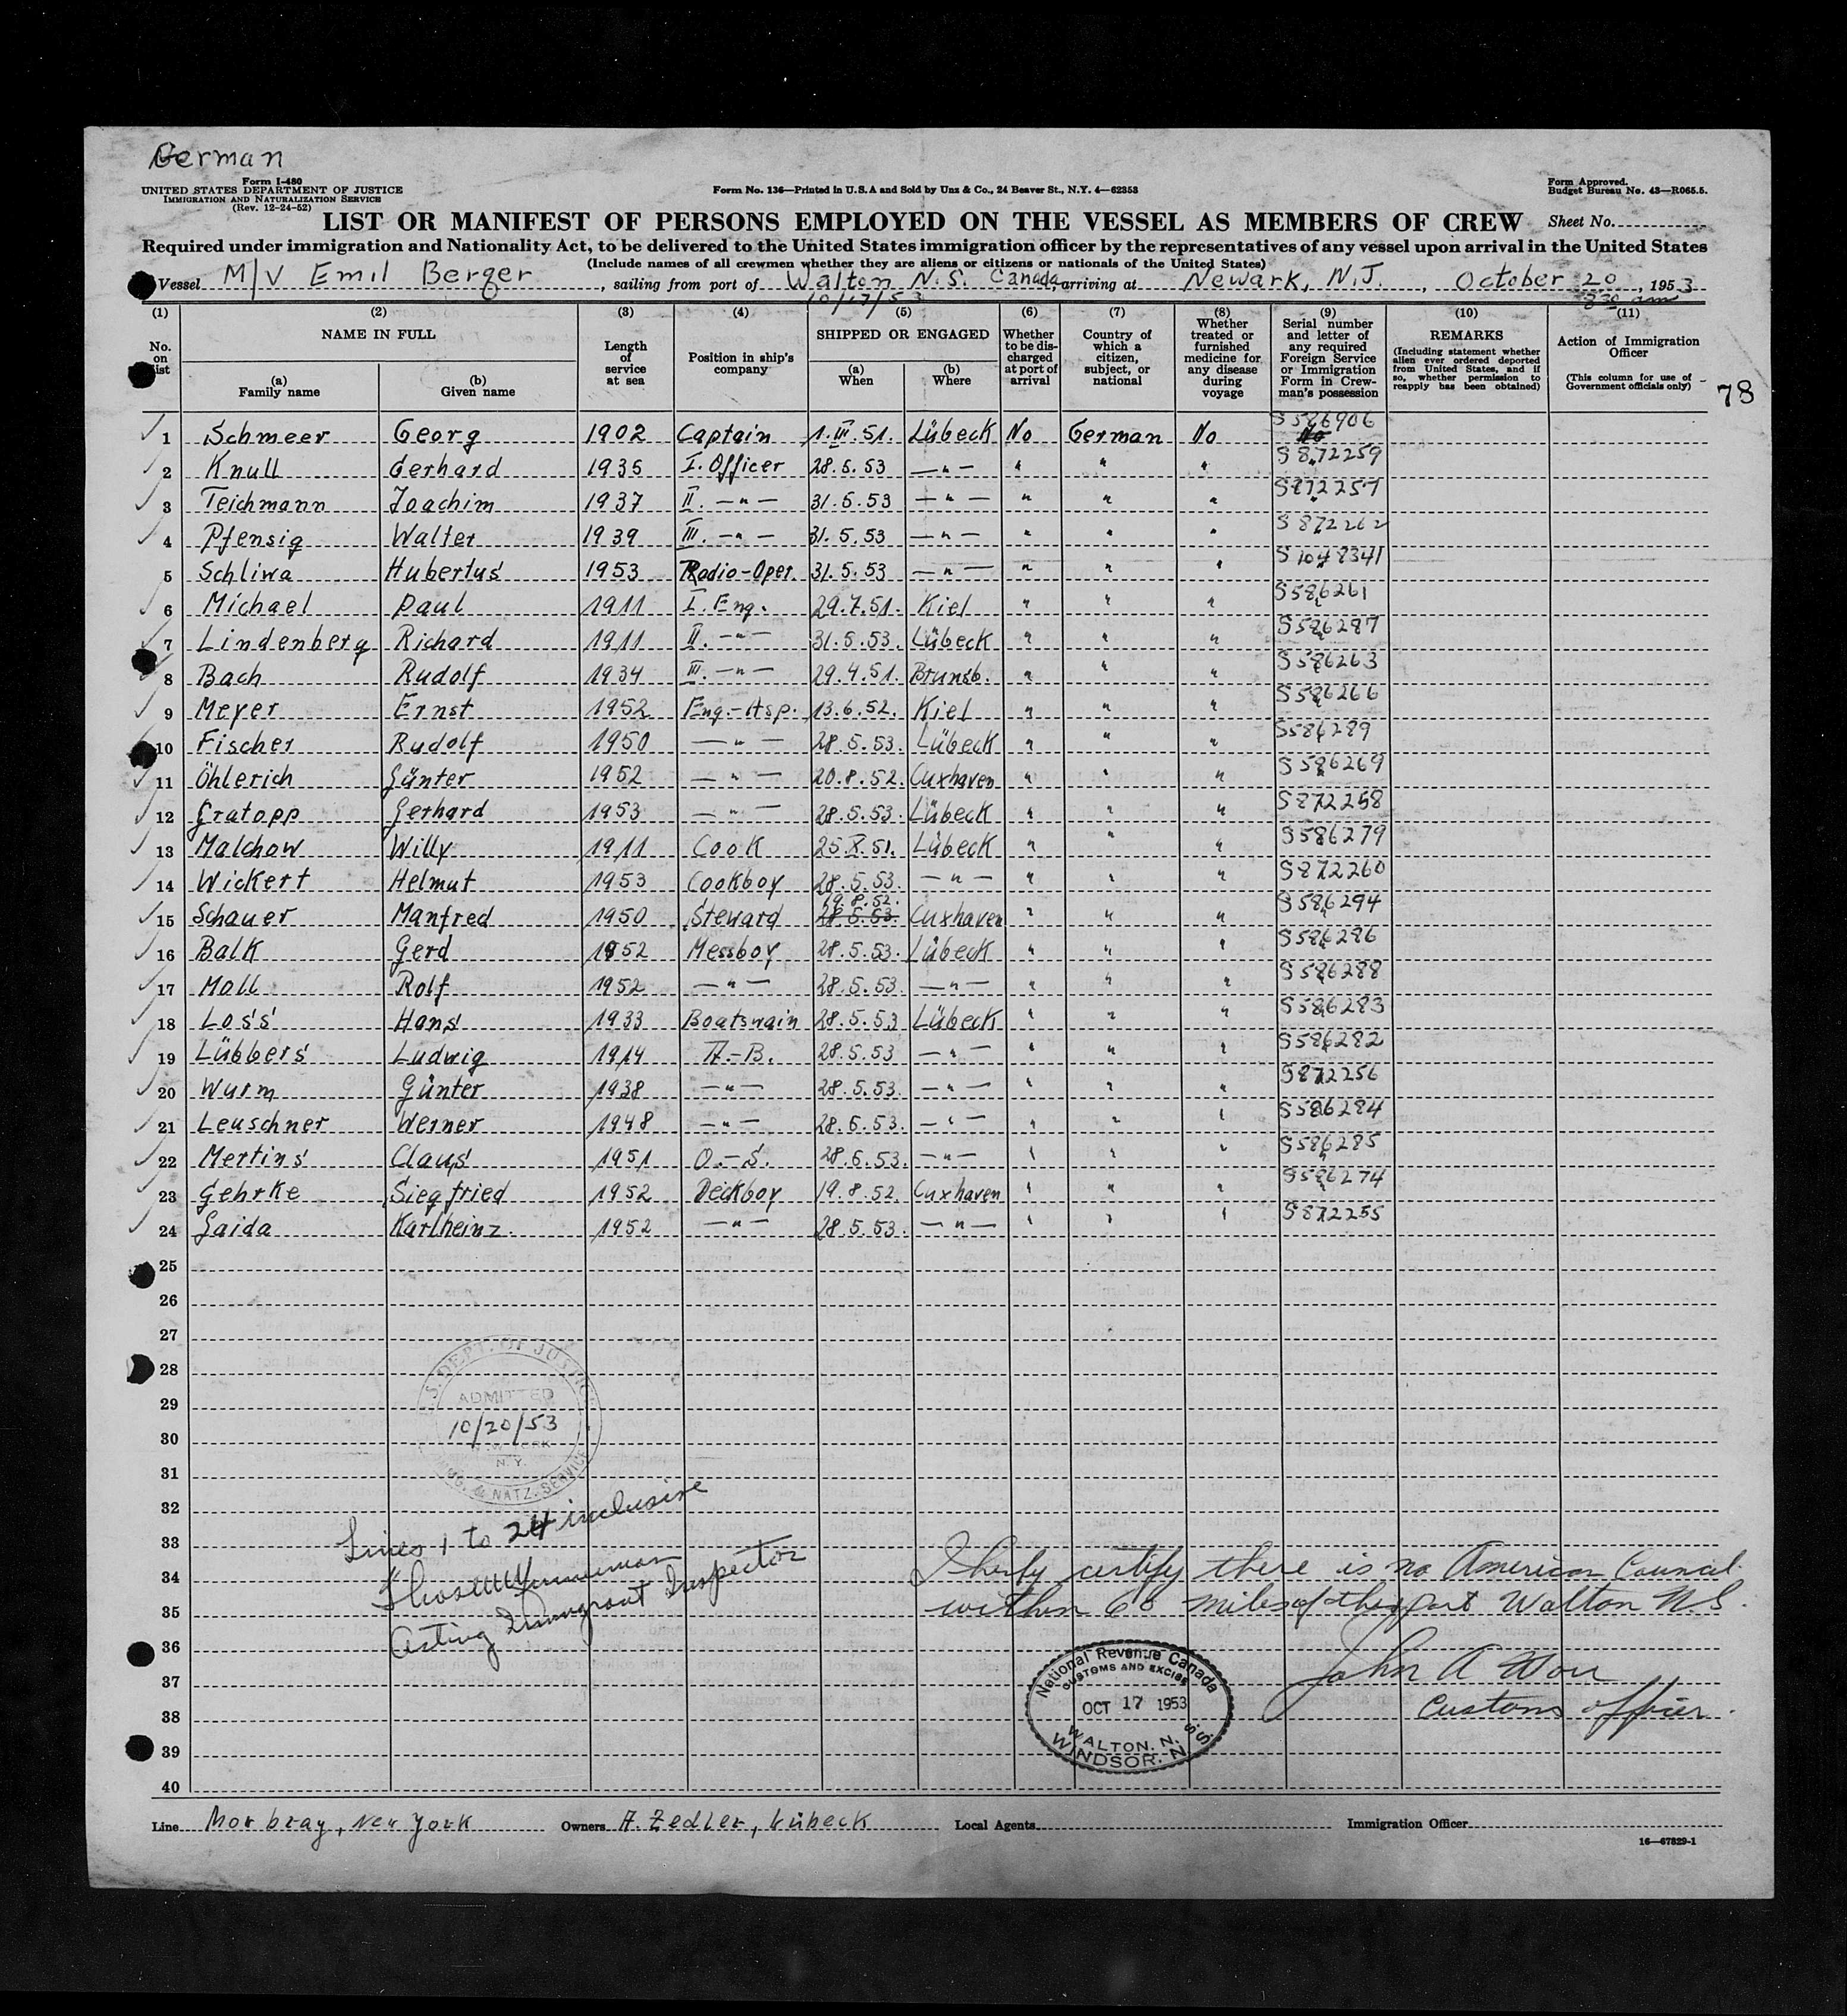 German
Form I-480
UNITED STATES DEPARTMENT OF JUSTICE
IMMIGRATION AND NATURALIZATION SERVICE
(Rev. 12-24-52)
Form No. 136—Printed in U.S.A and Sold by Unz & Co., 24 Beaver St., N.Y. 4—62353
Form Approved.
Budget Bureau No. 43—R065.5.
LIST OR MANIFEST OF PERSONS EMPLOYED ON THE VESSEL AS MEMBERS OF CREW
Sheet No.
Required under immigration and Nationality Act, to be delivered to the United States immigration officer by the representatives of any vessel upon arrival in the United States
(Include names of all crewmen whether they are aliens or citizens or nationals of the United States)
Vessel M/V Emil Berger, sailing from port of Walton N.S. Canada, arriving at Newark, N.J., October 20, 1953
10/17/53 830 am
(1) (2) (3) (4) (5) (6) (7) (8) (9) (10) (11)
No. on list
NAME IN FULL
(a) Family name
(b) Given name
Length of service at sea
Position in ship's company
SHIPPED OR ENGAGED
(a) When
(b) Where
Whether to be discharged at port of arrival
Country of which a citizen, subject, or national
Whether treated or furnished medicine for any disease during voyage
Serial number and letter of any required Foreign Service or Immigration Form in Crewman's possession
REMARKS
(Including statement whether alien ever ordered deported from United States, and if so, whether permission to reapply has been obtained)
Action of Immigration Officer
(This column for use of Government officials only)
78
1 Schmeer Georg 1902 Captain 1.III.51. Lübeck No German No S586906
2 Knull Gerhard 1935 I. Officer 28.5.53 —"— " " " S872259
3 Teichmann Joachim 1937 II. —"— 31.5.53 —"— " " " S872257
4 Pfensig Walter 1939 III. —"— 31.5.53 —"— " " " S872262
5 Schliwa Hubertus 1953 Radio-Oper. 31.5.53 —"— " " " S1048341
6 Michael Paul 1911 I. Eng. 29.7.51. Kiel " " " S586261
7 Lindenberg Richard 1911 II. —"— 31.5.53. Lübeck " " " S586287
8 Bach Rudolf 1934 III. —"— 29.4.51. Brunsb. " " " S586263
9 Meyer Ernst 1952 Eng.-Asp. 13.6.52. Kiel " " " S586266
10 Fischer Rudolf 1950 —"— 28.5.53. Lübeck " " " S586289
11 Öhlerich Günter 1952 —"— 20.8.52. Cuxhaven " " " S586269
12 Gratopp Gerhard 1953 —"— 28.5.53. Lübeck " " " S872258
13 Malchow Willy 1911 Cook 25.X.51. Lübeck " " " S586279
14 Wickert Helmut 1953 Cookboy 28.5.53. —"— " " " S872260
19.8.52.
15 Schauer Manfred 1950 Steward 28.5.53. Cuxhaven " " " S586294
16 Balk Gerd 1952 Messboy 28.5.53. Lübeck " " " S586286
17 Moll Rolf 1952 —"— 28.5.53. —"— " " " S586288
18 Loss Hans 1933 Boatswain 28.5.53 Lübeck " " " S586283
19 Lübbers Ludwig 1914 A.-B. 28.5.53 —"— " " " S586282
20 Wurm Günter 1938 —"— 28.5.53. —"— " " " S872256
21 Leuschner Werner 1948 —"— 28.5.53. —"— " " " S586284
22 Mertins Claus 1951 O.-S. 28.5.53. —"— " " " S586285
23 Gehrke Siegfried 1952 Deckboy 19.8.52. Cuxhaven " " " S586274
24 Gaida Karlheinz 1952 —"— 28.5.53. —"— " " " S872255
25
26
27
28
29
30
31
32
33
34
35
36
37
38
39
40
U.S. DEPT. OF JUSTICE
ADMITTED
10/20/53
N.Y.
& NATZ. SERVICE
Lines 1 to 24 inclusive
Acting Immigrant Inspector
I herby certify there is no American Councel
within 60 miles of the port Walton N.S.
John A
Customs officer.
National Revenue Canada
CUSTOMS AND EXCISE
OCT 17 1953
WALTON, N.S.
WINDSOR, N.S.
Line Mowbray, New York Owners A. Zedler, Lübeck Local Agents Immigration Officer
16—67829-1